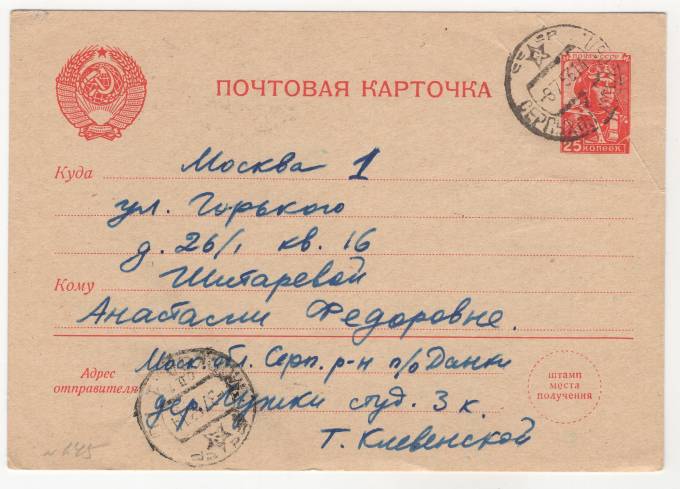 ПОЧТОВАЯ КАРТОЧКА
ПОЧТА СССР
25 КОПЕЕК
СЕРПУХОВ
Куда Москва 1
ул. Горького
д. 26/1 кв. 16
Кому Шитаревой
Анастасии Федоровне.
Адрес отправителя:
Моск. обл. Серп. р-н п/о Данки
дер. Лужки студ. 3 к.
Т. Клевенской
штамп
места
получения